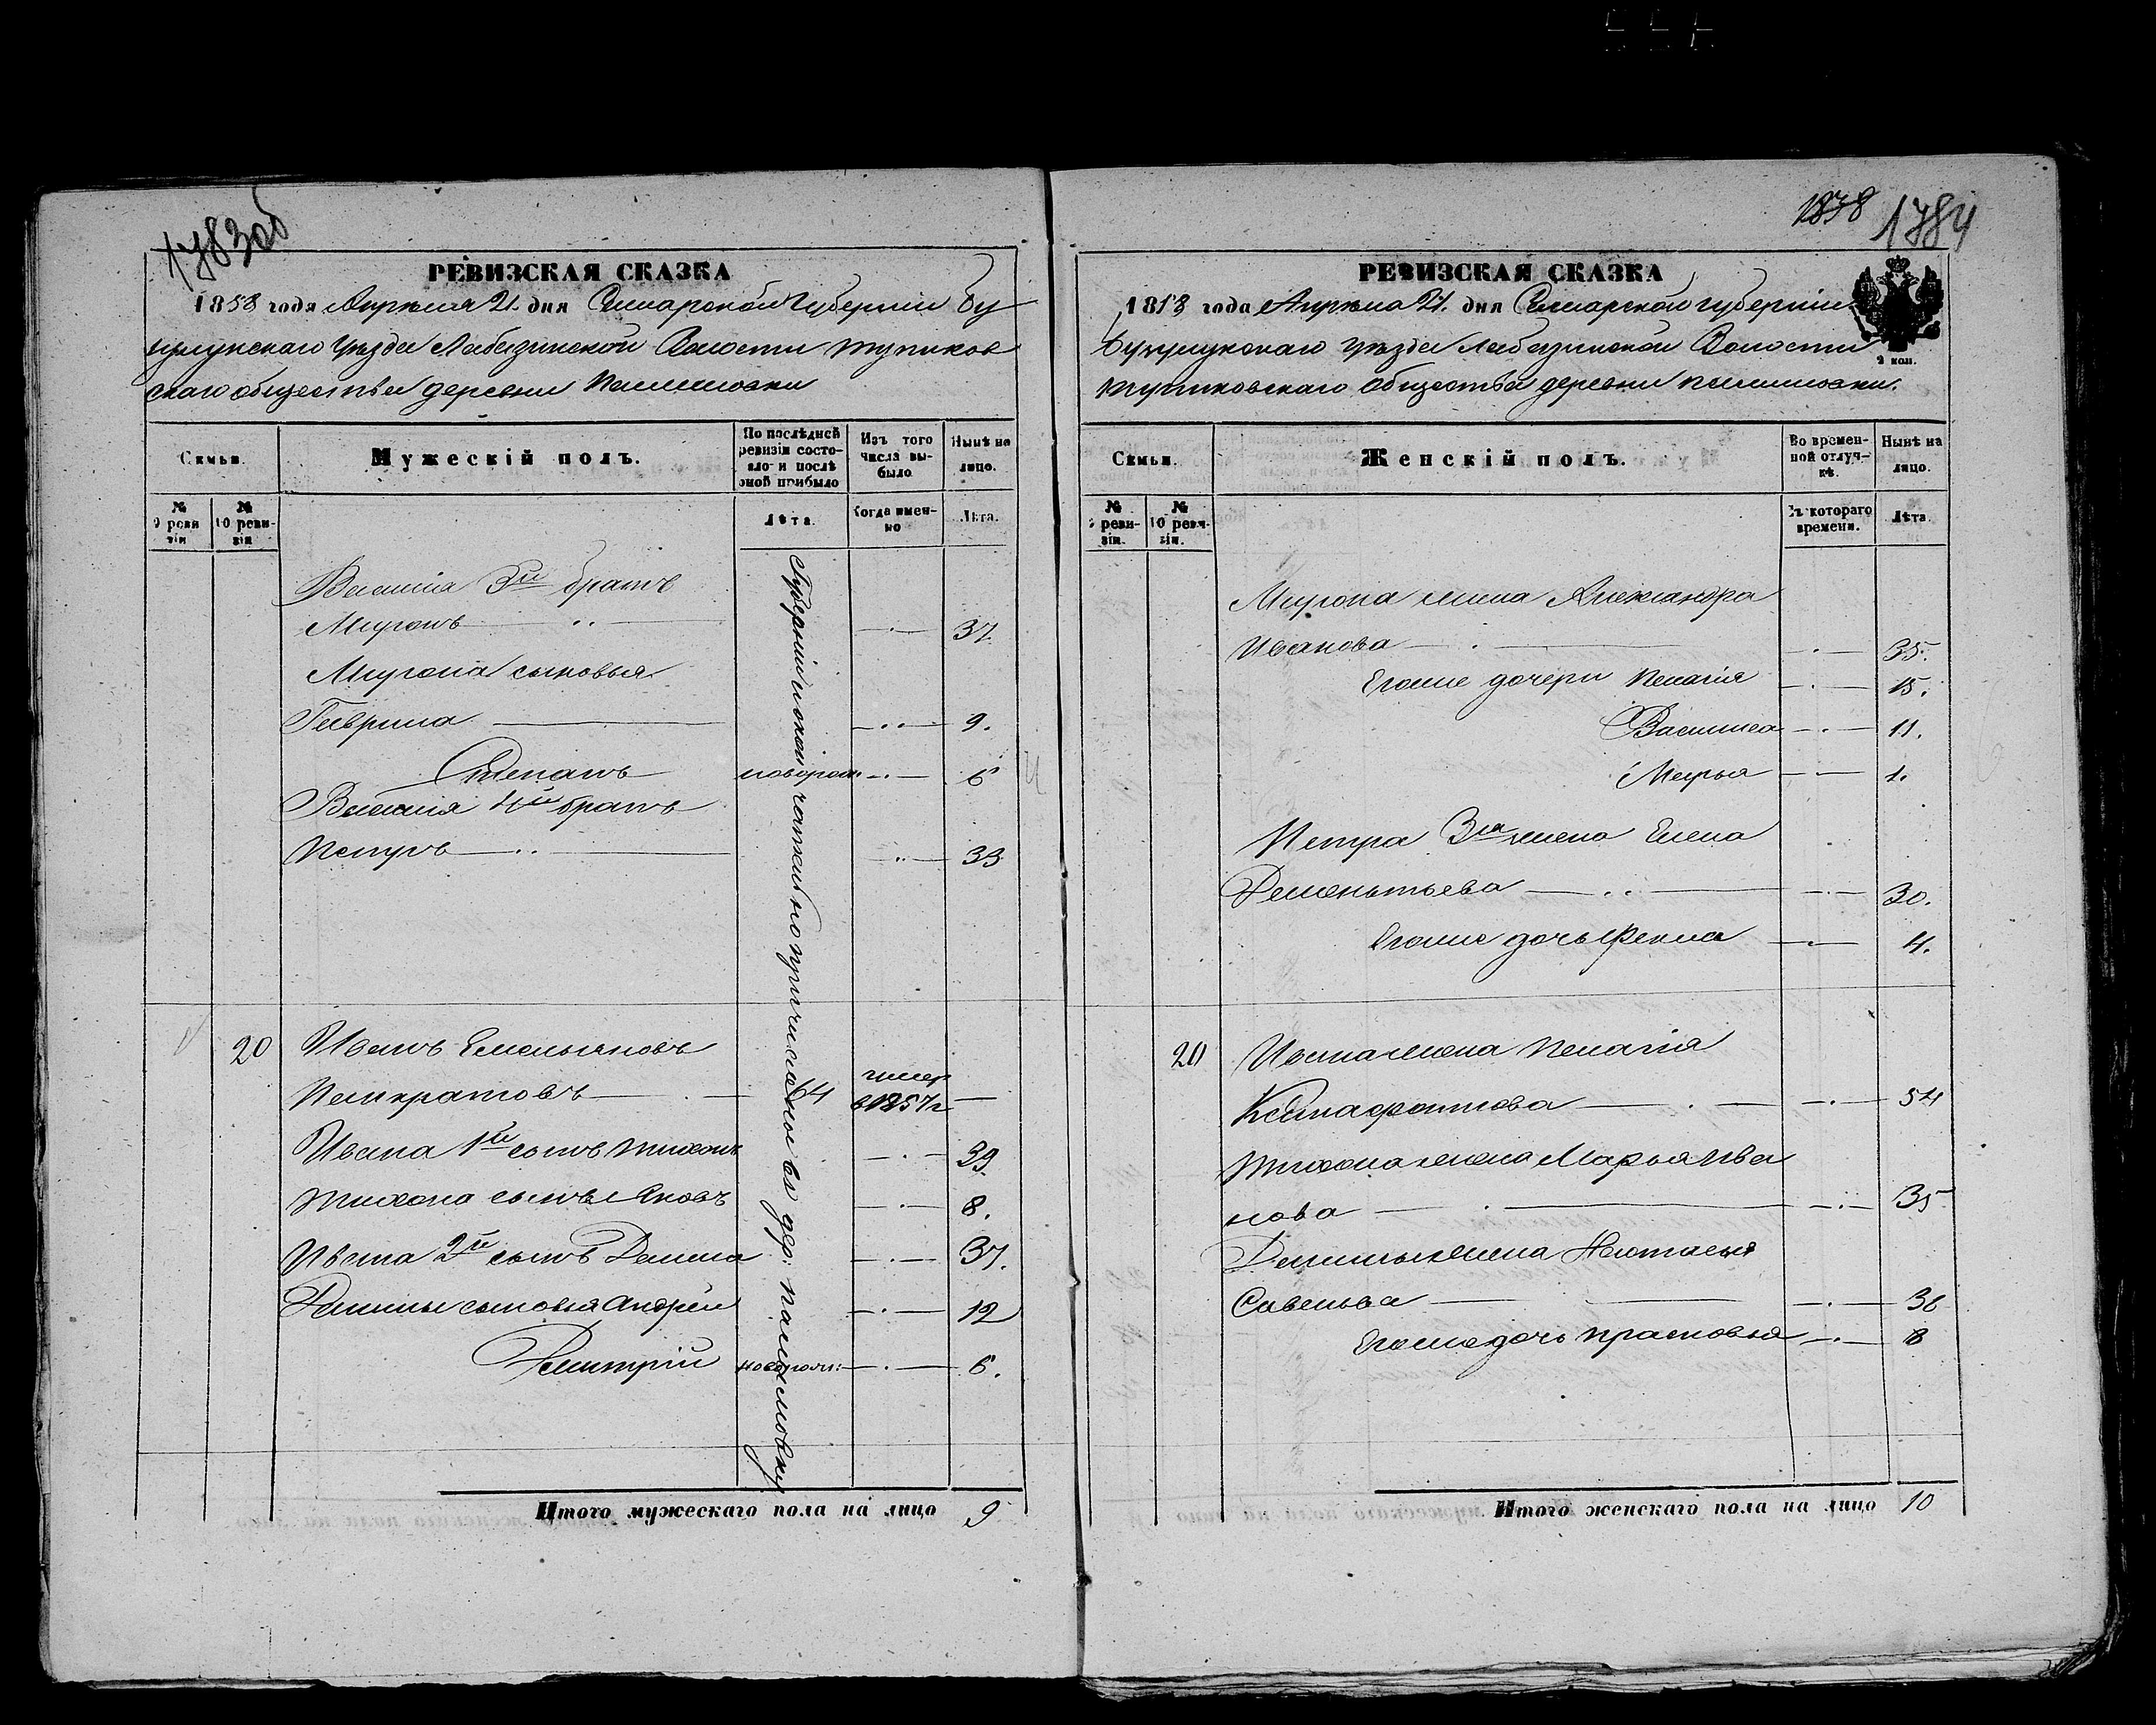 1783об
РЕВИЗСКАЯ СКАЗКА
1858 года Апреля 21 дня Самарской Губернiи Бу
зулукскаго Уѣзда Лабазинской Волости Тупиков
скаго общества деревни
Семьи.
Мужескiй полъ.
По послѣдней ревизiи состо-яло и послѣ оной прибыло
Изъ того числа вы-было
Нынѣ на лицо.
№ 9 реви зiи
№ 10 реви-зiи
Лѣта.
Когда имен-но
Лѣта.
Василiя 3й братъ
Миронъ 37.
Мирона сыновья
Гаврила 9.
Степанъ новорож. 6
Василiя 4й братъ
Петръ 33
20 Иванъ Емельяновъ
Панкратовъ 64 умер в 1857 г
Ивана 1й сынъ Тихонъ 39.
Тихона сынъ Яковъ 8.
Ивана 2й сынъ Демина 37.
Демины сыновья Андрей 12
Дмитрiй новорож: 6.
Итого мужескаго пола на лицо 9
1838 1784
РЕВИЗСКАЯ СКАЗКА
1858 года Апреля 21. дня Самарской губернiи
Бузулукскаго уѣзда Лабазинской Волости
Тупиковскаго общества деревни
2 коп.
Семьи.
Женскiй полъ.
Во времен-ной отлуч-кѣ.
Нынѣ на лицо.
№ 9 реви-зiи.
№ 10 реви-зiи.
Съ котораго времени.
Лѣта.
Мирона жена Александра
Иванова 35.
Его же дочери Пелагiя 15.
Василиса 11.
Марья 1.
Петра 3я жена Елена
Дементьева 30.
Его же дочь Фекла 4.
20 Ивана жена Пелагiя
Ксенофонтова 54
Тихона жена Марья Ива
нова 35
Демины жена Настасья
Савельева 36
Его же дочь Прасковья 8
Итого женскаго пола на лицо 10